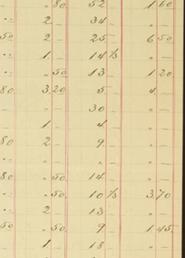 80 52 1 60
2 - 34 -
50 2 - 25 6 50
1 - 14 1/3 -
50 13 1 20
80 3 20 5 4 -
- 30 -
1 - 4 -
80 2 - 9 -
- " -
80 50 14 -
50 10 1/3 3 70
2 - 13 -
50 50 9 1 45
1 - 13 -